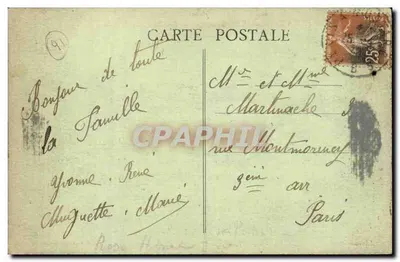 91
CARTE POSTALE
25c
Bonjour de toute
la Famille
Yvonne. René
Muguette. Marié
Mr et Mme
Martinache
rue Montmorency
3eme arr
Paris
CPARAMA